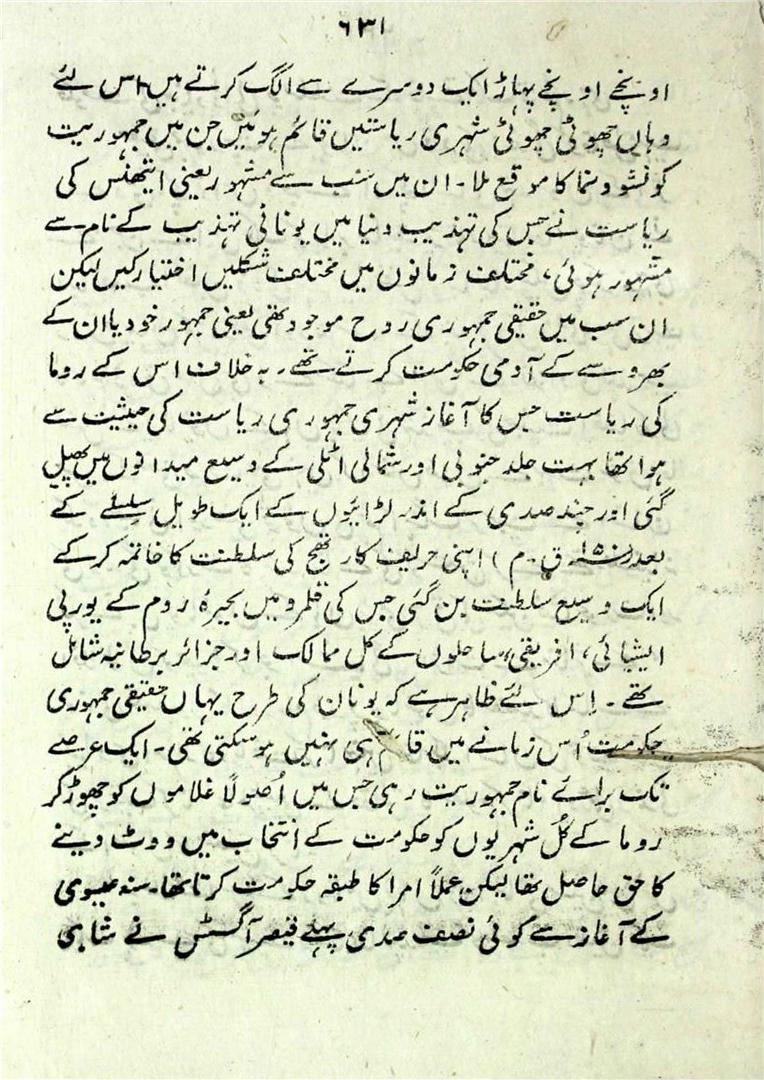 ۶۳۱
اونچے اونچے پہاڑ ایک دوسرے سے الگ کرتے ہیں اس لئے
وہاں چھوٹی چھوٹی شہری ریاستیں قائم ہوئیں جن میں جمہوریت
کو نشو و نما کا موقع ملا ۔ ان میں سب سے مشہور یعنی ایتھنس کی
ریاست نے جس کی تہذیب دنیا میں یونانی تہذیب کے نام سے
مشہور ہوئی، مختلف زمانوں میں مختلف شکلیں اختیار کیں لیکن
ان سب میں حقیقی جمہوری روح موجود تھی یعنی جمہور خود یا ان کے
بھروسے کے آدمی حکومت کرتے تھے ۔ بہ خلاف اس کے روما
کی ریاست جس کا آغاز شہری جمہوری ریاست کی حیثیت سے
ہوا تھا بہت جلد جنوبی اور شمالی اٹلی کے وسیع میدانوں میں پھیل
گئی اور چند صدی کے اندر لڑائیوں کے ایک طویل سلسلے کے
بعد (۱۵۰ ق ۔ م) اپنی حریف کارتھیج کی سلطنت کا خاتمہ کر کے
ایک وسیع سلطنت بن گئی جس کی قلمرو میں بحیرۂ روم کے یورپی
ایشیائی، افریقی ساحلوں کے کل ممالک اور جزائر برطانیہ شامل
تھے ۔ اِس لئے ظاہر ہے کہ یونان کی طرح یہاں حقیقی جمہوری
حکومت اُس زمانے میں قائم ہی نہیں ہو سکتی تھی ۔ ایک عرصے
تک برائے نام جمہوریت رہی جس میں اُصولاً غلاموں کو چھوڑ کر
روما کے کُل شہریوں کو حکومت کے انتخاب میں ووٹ دینے
کا حق حاصل تھا لیکن عملاً امرا کا طبقہ حکومت کرتا تھا ۔ سنہ عیسوی
کے آغاز سے کوئی نصف صدی پہلے قیصر آگسٹس نے شاہی